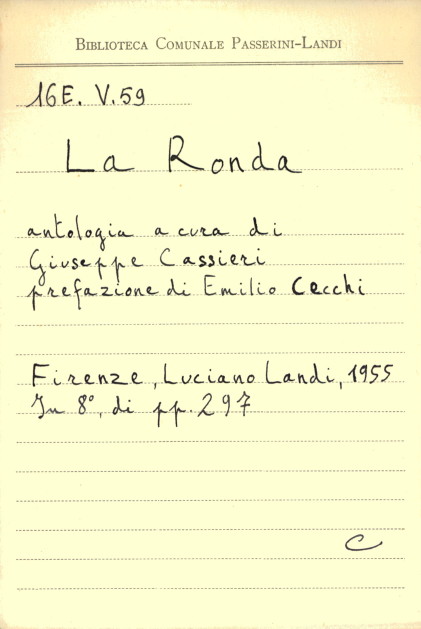 Biblioteca Comunale Passerini-Landi
16E. V.59
La Ronda
antologia a cura di
Giuseppe Cassieri
prefazione di Emilio Cecchi
Firenze, Luciano Landi, 1955
In 8°, di pp. 297
C